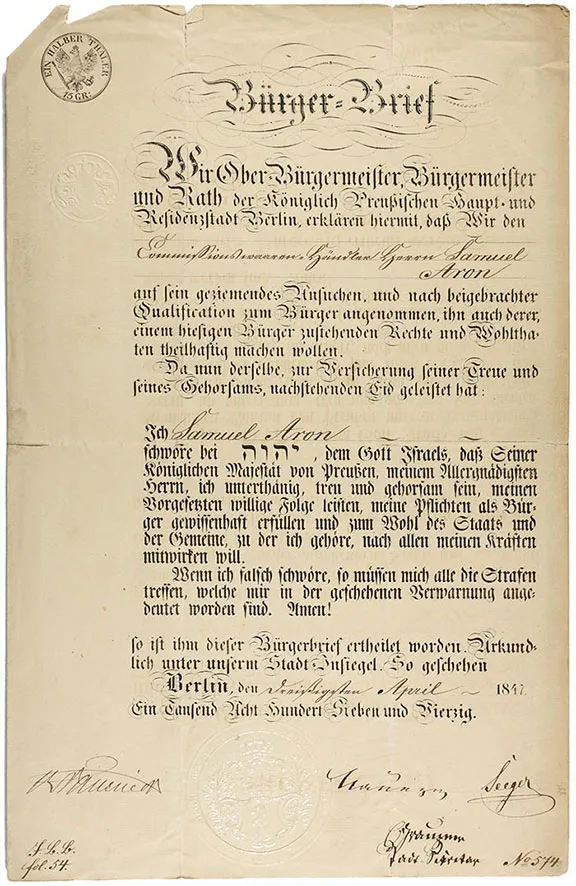 EIN HALBER THALER
15 GR:
Bürger-Brief
Wir Ober-Bürgermeister, Bürgermeister
und Rath der Königlich Preußischen Haupt- und
Residenzstadt Berlin, erklären hiermit, daß Wir den
Commissionswaaren-Händler Herrn Samuel
Aron
auf sein geziemendes Ansuchen, und nach beigebrachter
Qualification zum Bürger angenommen, ihn auch derer,
einem hiesigen Bürger zustehenden Rechte und Wohltha-
ten theilhaftig machen wollen.
Da nun derselbe, zur Versicherung seiner Treue und
seines Gehorsams, nachstehenden Eid geleistet hat:
Ich Samuel Aron
schwöre bei יהוה, dem Gott Israels, daß Seiner
Königlichen Majestät von Preußen, meinem Allergnädigsten
Herrn, ich unterthänig, treu und gehorsam sein, meinen
Vorgesetzten willige Folge leisten, meine Pflichten als Bür-
ger gewissenhaft erfüllen und zum Wohl des Staats und
der Gemeine, zu der ich gehöre, nach allen meinen Kräften
mitwirken will.
Wenn ich falsch schwöre, so müssen mich alle die Strafen
treffen, welche mir in der geschehenen Verwarnung ange-
deutet worden sind. Amen!
so ist ihm dieser Bürgerbrief ertheilet worden. Urkund-
lich unter unserm Stadt-Insiegel. So geschehen
Berlin, den dreißigsten April 1847.
Ein Tausend Acht Hundert Sieben und Vierzig.
Seeger
Stadt-Sekretar
J. B. B.
fol. 54.
No 574.